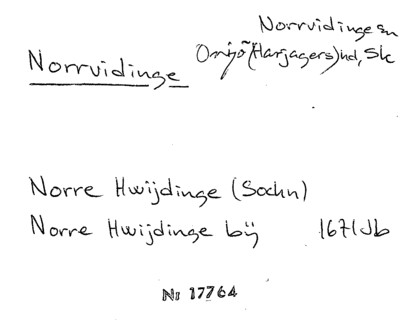 Norrvidinge sn
Norrvidinge
Onsjö (Harjagers) hd, Sk
Norre Hwijdinge (Sochn)
Norre Hwijdinge bÿ 1671 Jb
Nr 17764